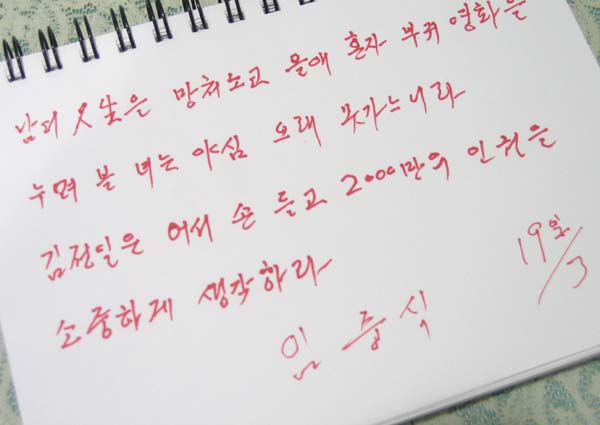 남의 人生을 망쳐노고 올애 혼자 부귀 영화을
누며 볼 녀는 야심 오래 못가느니라
김정일은 어서 손 들고 2000만의 인권을
소중하게 생각하라
임중식 19일/3